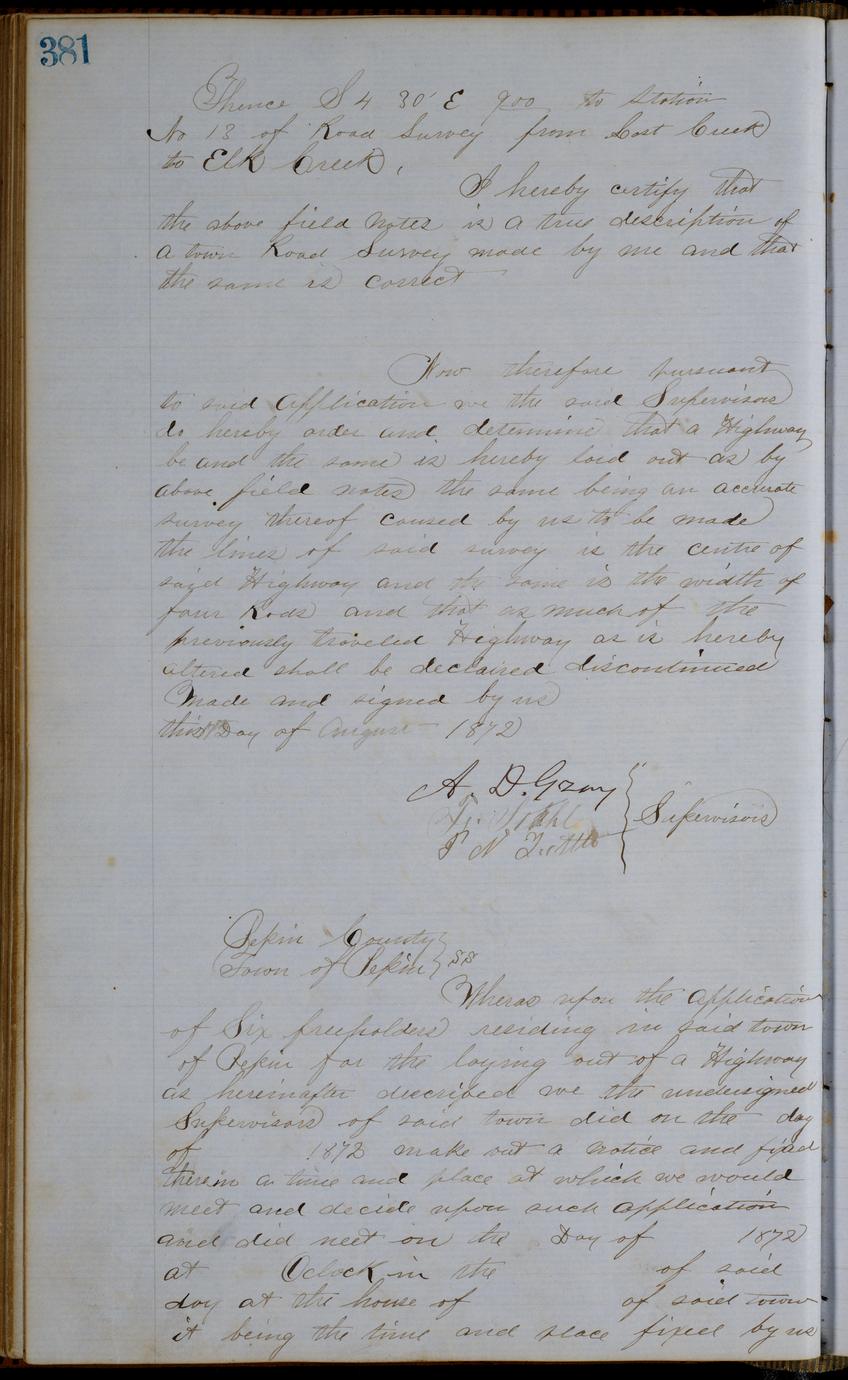 381
Thence S 4 30' E 900 to station
No 13 of Road Survey from Lost Creek
to Elk Creek,
I hereby certify that
the above field notes is a true description of
a town Road Survey made by me and that
the same is correct
Now therefore pursuant
to said Application we the said Supervisors
do hereby order and determine that a Highway
be and the same is hereby laid out as by
above field notes the same being an accurate
survey thereof caused by us to be made
the lines of said survey is the centre of
said Highway and the same is the width of
four Rods and that as much of the
previously traveled Highway as is hereby
altered shall be declaired discontinued
Made and signed by us
this Day of August 1872
A. D. Gray
Supervisors
P N Tuttle
Pepin County
Town of Pepin } SS
Wheras upon the application
of Six freeholders residing in said town
of Pepin for the laying out of a Highway
as hereinafter described we the undersigned
Supervisors of said town did on the day
of 1872 make out a notice and fixed
therein a time and place at which we would
meet and decide upon such application
and did meet on the Day of 1872
at Oclock in the of said
day at the house of of said town
it being the time and place fixed by us